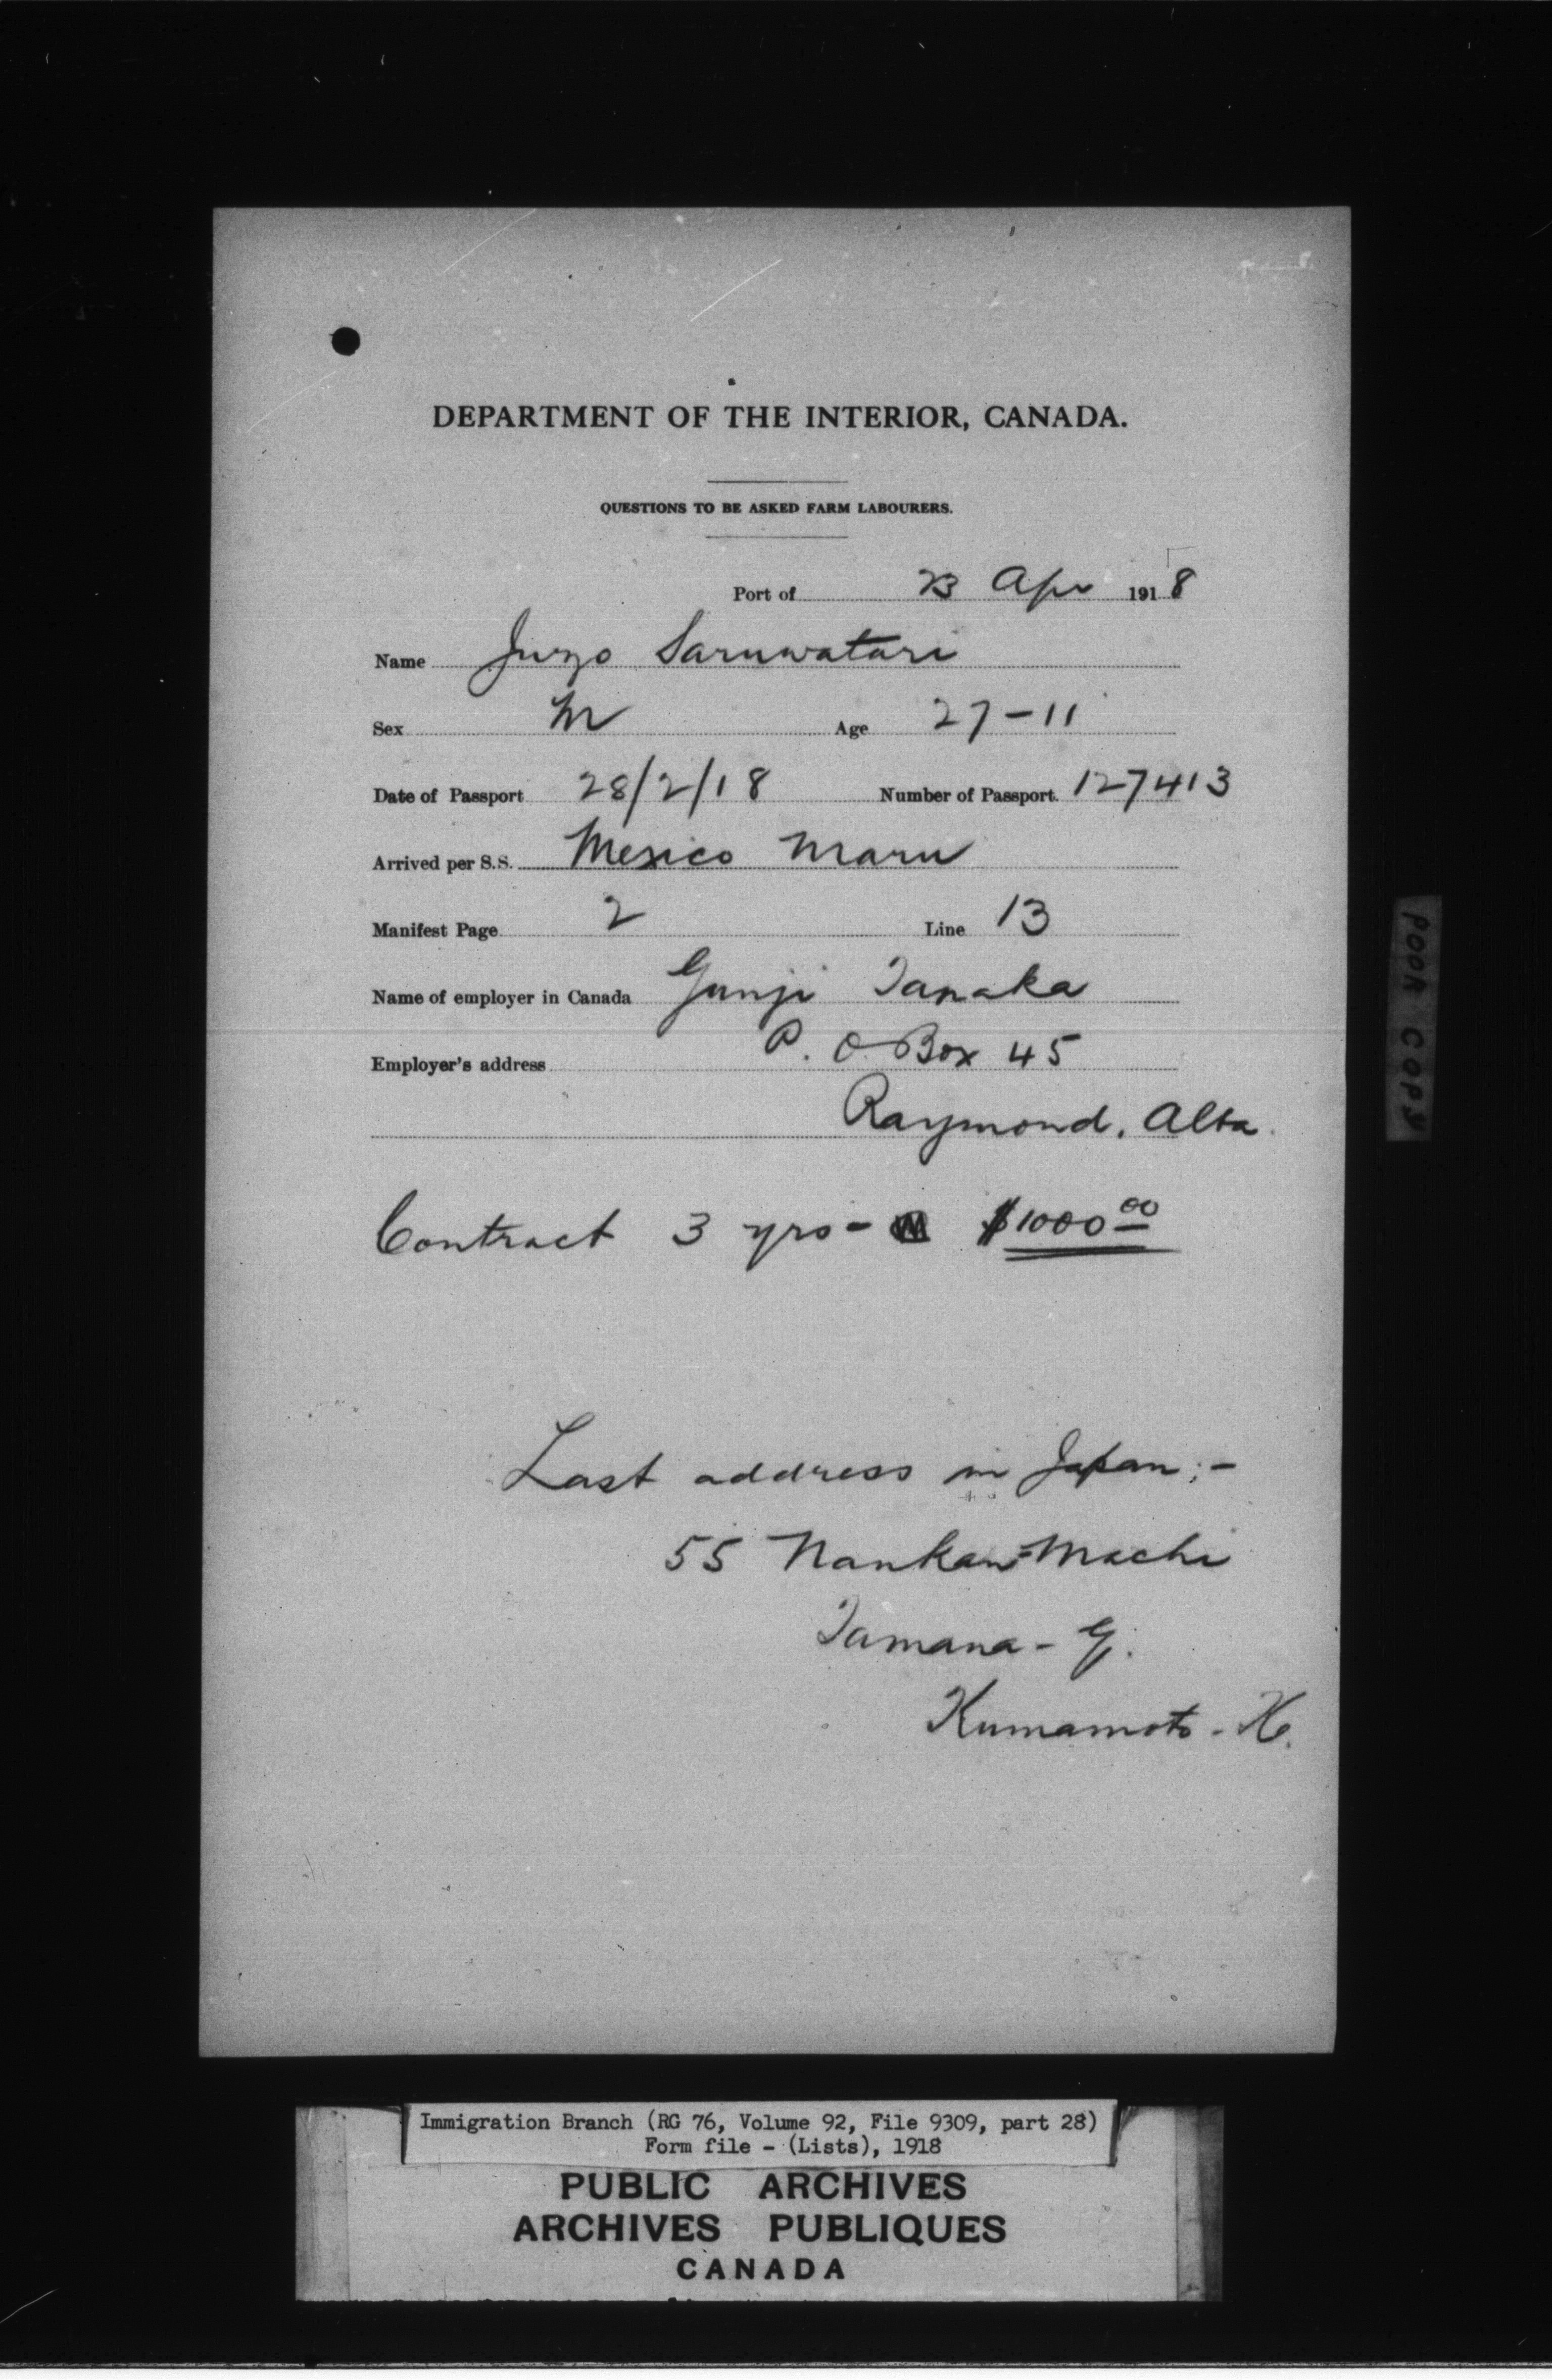 DEPARTMENT OF THE INTERIOR, CANADA.
QUESTIONS TO BE ASKED FARM LABOURERS.
Port of 23 Apr 1918
Name Juzo Saruwatari
Sex M Age 27-11
Date of Passport 28/2/18 Number of Passport. 127413
Arrived per S.S. Mexico Maru
Manifest Page 2 Line 13
Name of employer in Canada Gunji Tanaka
Employer's address P. O Box 45
Raymond, Alta.
Contract 3 yrs - $1000.00
Last address in Japan:-
55 Nankan-Machi
Tamana - G.
Kumamoto - K.
POOR COPY
Immigration Branch (RG 76, Volume 92, File 9309, part 28)
Form file - (Lists), 1918
PUBLIC ARCHIVES
ARCHIVES PUBLIQUES
CANADA